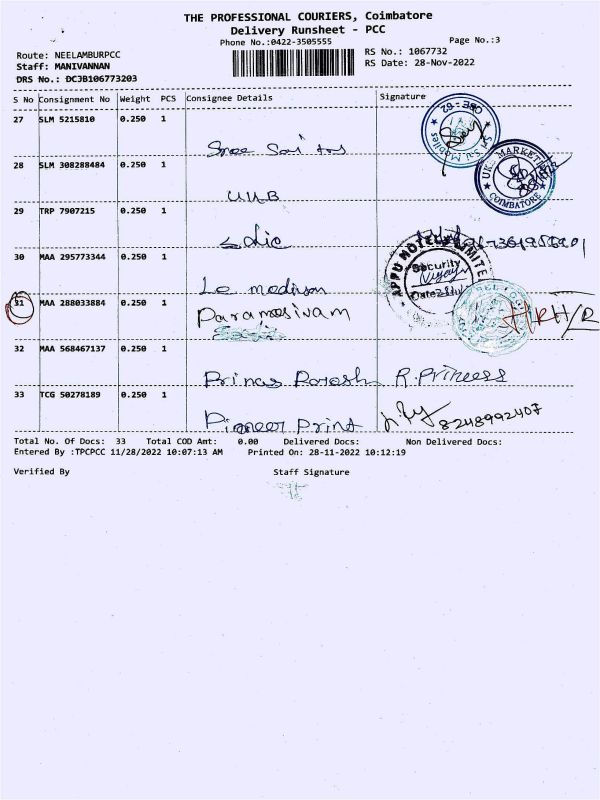 THE PROFESSIONAL COURIERS, Coimbatore
Delivery Runsheet - PCC
Phone No.:0422-3505555
Page No.:3
Route: NEELAMBURPCC
RS No.: 1067732
Staff: MANIVANNAN
RS Date: 28-Nov-2022
DRS No.: DCJB106773203
S No Consignment No Weight PCS Consignee Details Signature
27 SLM 5215810 0.250 1
Sree Sai
28 SLM 308288484 0.250 1
UKB MARKETING
COIMBATORE
29 TRP 7907215 0.250 1
30 MAA 295773344 0.250 1
Le
APPU HOTELS LIMITED
Security
31 MAA 288033884 0.250 1
Paramasivam
H/R
32 MAA 568467137 0.250 1
Princes R. Princess
33 TCG 50278189 0.250 1
Pioneer Print 8248992407
Total No. Of Docs: 33 Total COD Amt: 0.00 Delivered Docs: Non Delivered Docs:
Entered By :TPCPCC 11/28/2022 10:07:13 AM Printed On: 28-11-2022 10:12:19
Verified By Staff Signature